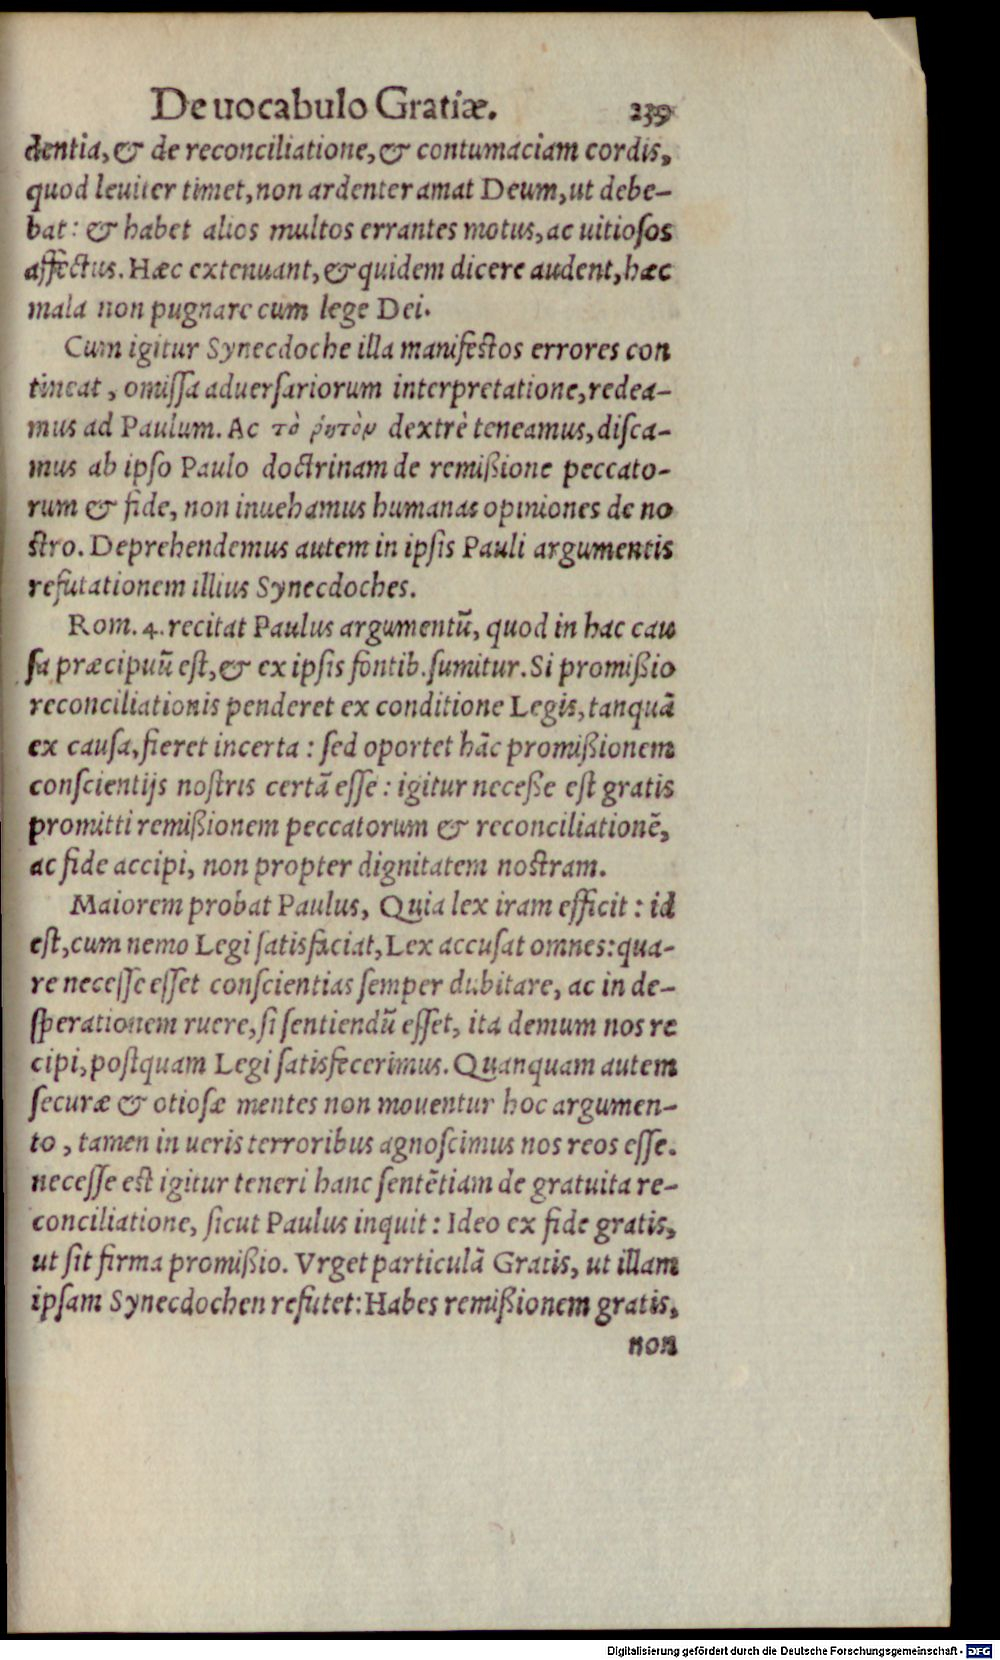 De uocabulo Gratiæ. 239
dentia, & de reconciliatione, & contumaciam cordis,
quod leuiter timet, non ardenter amat Deum, ut debe-
bat: & habet alios multos errantes motus, ac uitiosos
affectus. Hæc extenuant, & quidem dicere audent, hæc
mala non pugnare cum lege Dei.
Cum igitur Synecdoche illa manifestos errores con
tineat, omissa aduersariorum interpretatione, redea-
mus ad Paulum. Ac τὸ ῥητὸν dextrè teneamus, disca-
mus ab ipso Paulo doctrinam de remißione peccato-
rum & fide, non inuehamus humanas opiniones de no
stro. Deprehendemus autem in ipsis Pauli argumentis
refutationem illius Synecdoches.
Rom. 4. recitat Paulus argumentũ, quod in hac cau
sa præcipuũ est, & ex ipsis fontib. sumitur. Si promißio
reconciliationis penderet ex conditione Legis, tanquã
ex causa, fieret incerta: sed oportet hãc promißionem
conscientijs nostris certã esse: igitur neceße est gratis
promitti remißionem peccatorum & reconciliationẽ,
ac fide accipi, non propter dignitatem nostram.
Maiorem probat Paulus, Quia lex iram efficit: id
est, cum nemo Legi satisfaciat, Lex accusat omnes: qua-
re necesse esset conscientias semper dubitare, ac in de-
sperationem ruere, si sentiendũ esset, ita demum nos re
cipi, postquam Legi satisfecerimus. Quanquam autem
securæ & otiosæ mentes non mouentur hoc argumen-
to, tamen in ueris terroribus agnoscimus nos reos esse.
necesse est igitur teneri hanc sentẽtiam de gratuita re-
conciliatione, sicut Paulus inquit: Ideo ex fide gratis,
ut sit firma promißio. Vrget particulã Gratis, ut illam
ipsam Synecdochen refutet: Habes remißionem gratis,
non
Digitalisierung gefördert durch die Deutsche Forschungsgemeinschaft - DFG